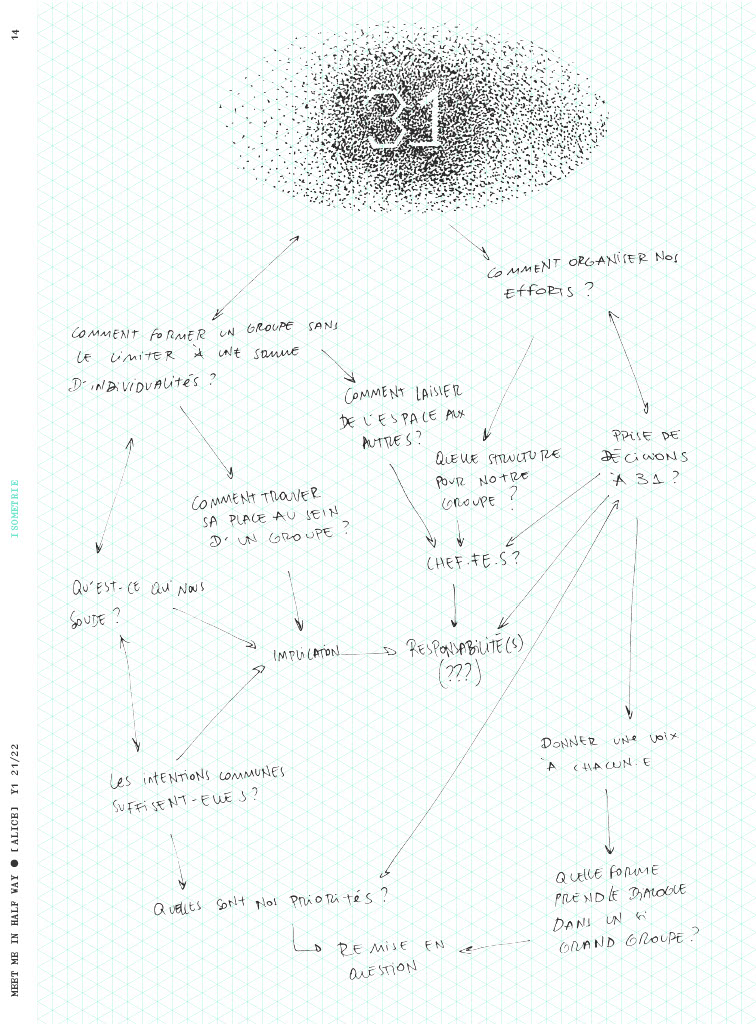 14
31
COMMENT ORGANISER NOS
EFFORTS ?
COMMENT FORMER UN GROUPE SANS
LE LIMITER À UNE SOMME
D'INDIVIDUALITÉS ?
COMMENT LAISSER
DE L'ESPACE AUX
AUTRES ?
QUELLE STRUCTURE
POUR NOTRE
GROUPE ?
PRISE DE
DÉCISIONS
À 31 ?
COMMENT TROUVER
SA PLACE AU SEIN
D'UN GROUPE ?
CHEF.FE.S ?
QU'EST-CE QUI NOUS
SOUDE ?
IMPLICATION
RESPONSABILITÉ(S)
(???)
DONNER UNE VOIX
À CHACUN.E
LES INTENTIONS COMMUNES
SUFFISENT-ELLES ?
QUELLES SONT NOS PRIORITÉS ?
QUELLE FORME
PREND LE DIALOGUE
DANS UN SI
GRAND GROUPE ?
REMISE EN
QUESTION
ISOMETRIE
MEET ME IN HALF WAY ● [ALICE] Y1 21/22